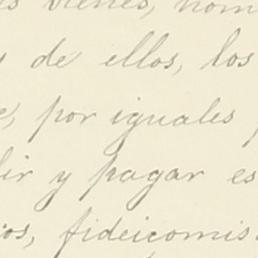 s bienes, nom
y de ellos, los
por iguales
lir y pagar es
os, fideicomis